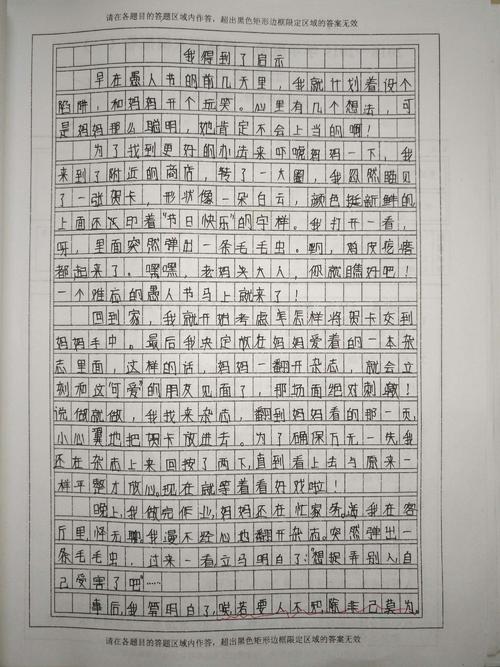 请在各题目的答题区域内作答，超出黑色矩形边框限定区域的答案无效
我得到了启示
早在愚人节的前几天里，我就计划着设个
陷阱，和妈妈开个玩笑。心里有几个想法，可
是妈妈那么聪明，她肯定不会上当的啊！
为了找到更好的办法来吓唬妈妈一下，我
来到了附近的商店，转了一大圈，我忽然瞄见
了一张贺卡，形状像一朵白云，颜色挺新鲜的
上面还仿印着“节日快乐”的字样。我打开一看，
呀，里面突然弹出一条毛毛虫。哟，鸡皮疙瘩
都起来了。嘿嘿，老妈大人，你就瞧好吧！
一个难忘的愚人节马上就来了！
回到家，我就开始考虑怎样将贺卡交到
妈妈手中。最后我决定放在妈妈爱看的一本杂
志里面，这样的话，妈妈一翻开杂志，就会立
刻和这“可爱”的朋友见面了，那场面绝对刺激！
说做就做，我找来杂志，翻到妈妈看的那一页，
小心翼地把贺卡放进去。为了确保万无一失，我
还在杂志上来回按了两下，直到看上去与原来一
样平整才放心。现在就等着看好戏啦！
晚上，我做完作业，妈妈还在忙家务。我在客
厅里怪无聊我漫不经心地翻开杂志。突然弹出一
条毛毛虫，过来一看立马明白了：“想捉弄别人，自
己受害了吧”……
事后，我算明白了，哎若要人不知除非己莫为。
请在各题目的答题区域内作答，超出黑色矩形边框限定区域的答案无效